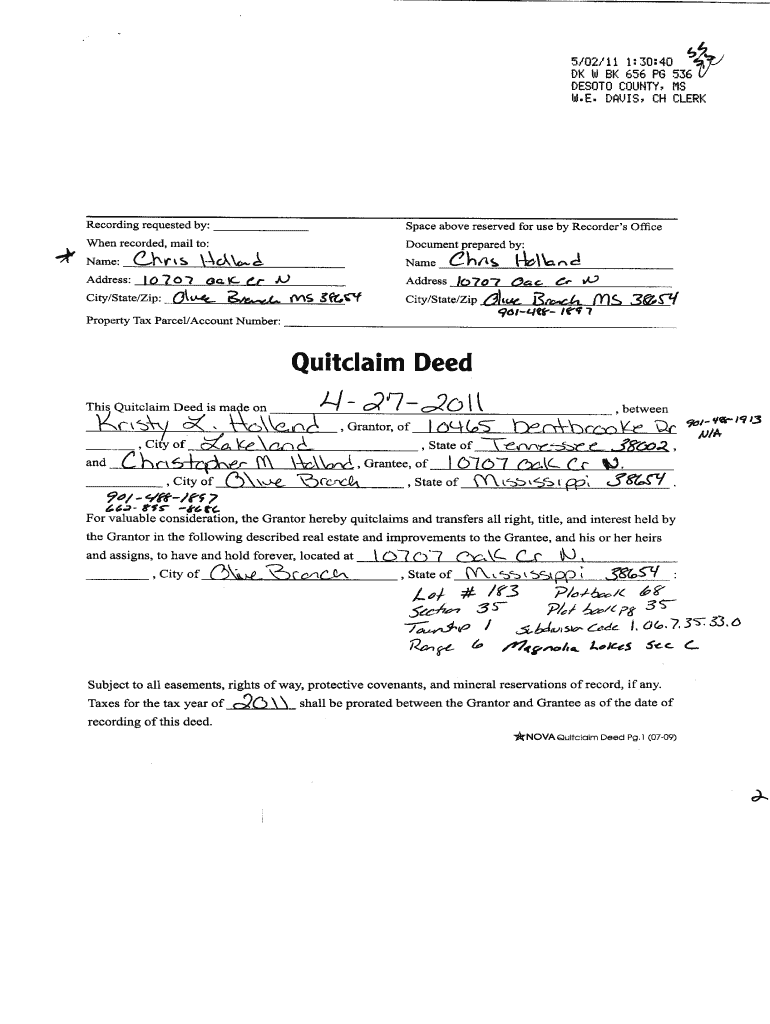 5/02/11 1:30:40
DK W BK 656 PG 536
DESOTO COUNTY, MS
W.E. DAVIS, CH CLERK
Recording requested by:
Space above reserved for use by Recorder's Office
When recorded, mail to:
Document prepared by:
* Name: Chris Holland
Name Chris Holland
Address: 10707 Oak Cr N
Address 10707 Oac Cr N
City/State/Zip: Olive Branch MS 38654
City/State/Zip Olive Branch MS 38654
901-488-1897
Property Tax Parcel/Account Number:
Quitclaim Deed
This Quitclaim Deed is made on 4-27-2011, between
Kristy L. Holland, Grantor, of 10465 Dentbrooke Dr 901-48-1913
N/A
, City of Lakeland, State of Tennessee 38002,
and Christopher M Holland, Grantee, of 10707 Oak Cr N.
, City of Olive Branch, State of Mississippi 38654.
901-488-1897
662-895-8686
For valuable consideration, the Grantor hereby quitclaims and transfers all right, title, and interest held by
the Grantor in the following described real estate and improvements to the Grantee, and his or her heirs
and assigns, to have and hold forever, located at 10707 Oak Cr N.
, City of Olive Branch, State of Mississippi 38654:
Lot # 183 Plotbook 68
Section 35 Plot book pg 35
Township 1 Subdivision Code 1.06.7.35.33.0
Range 6 Magnolia Lakes Sec C
Subject to all easements, rights of way, protective covenants, and mineral reservations of record, if any.
Taxes for the tax year of 2011 shall be prorated between the Grantor and Grantee as of the date of
recording of this deed.
NOVA Quitclaim Deed Pg.1 (07-09)
2